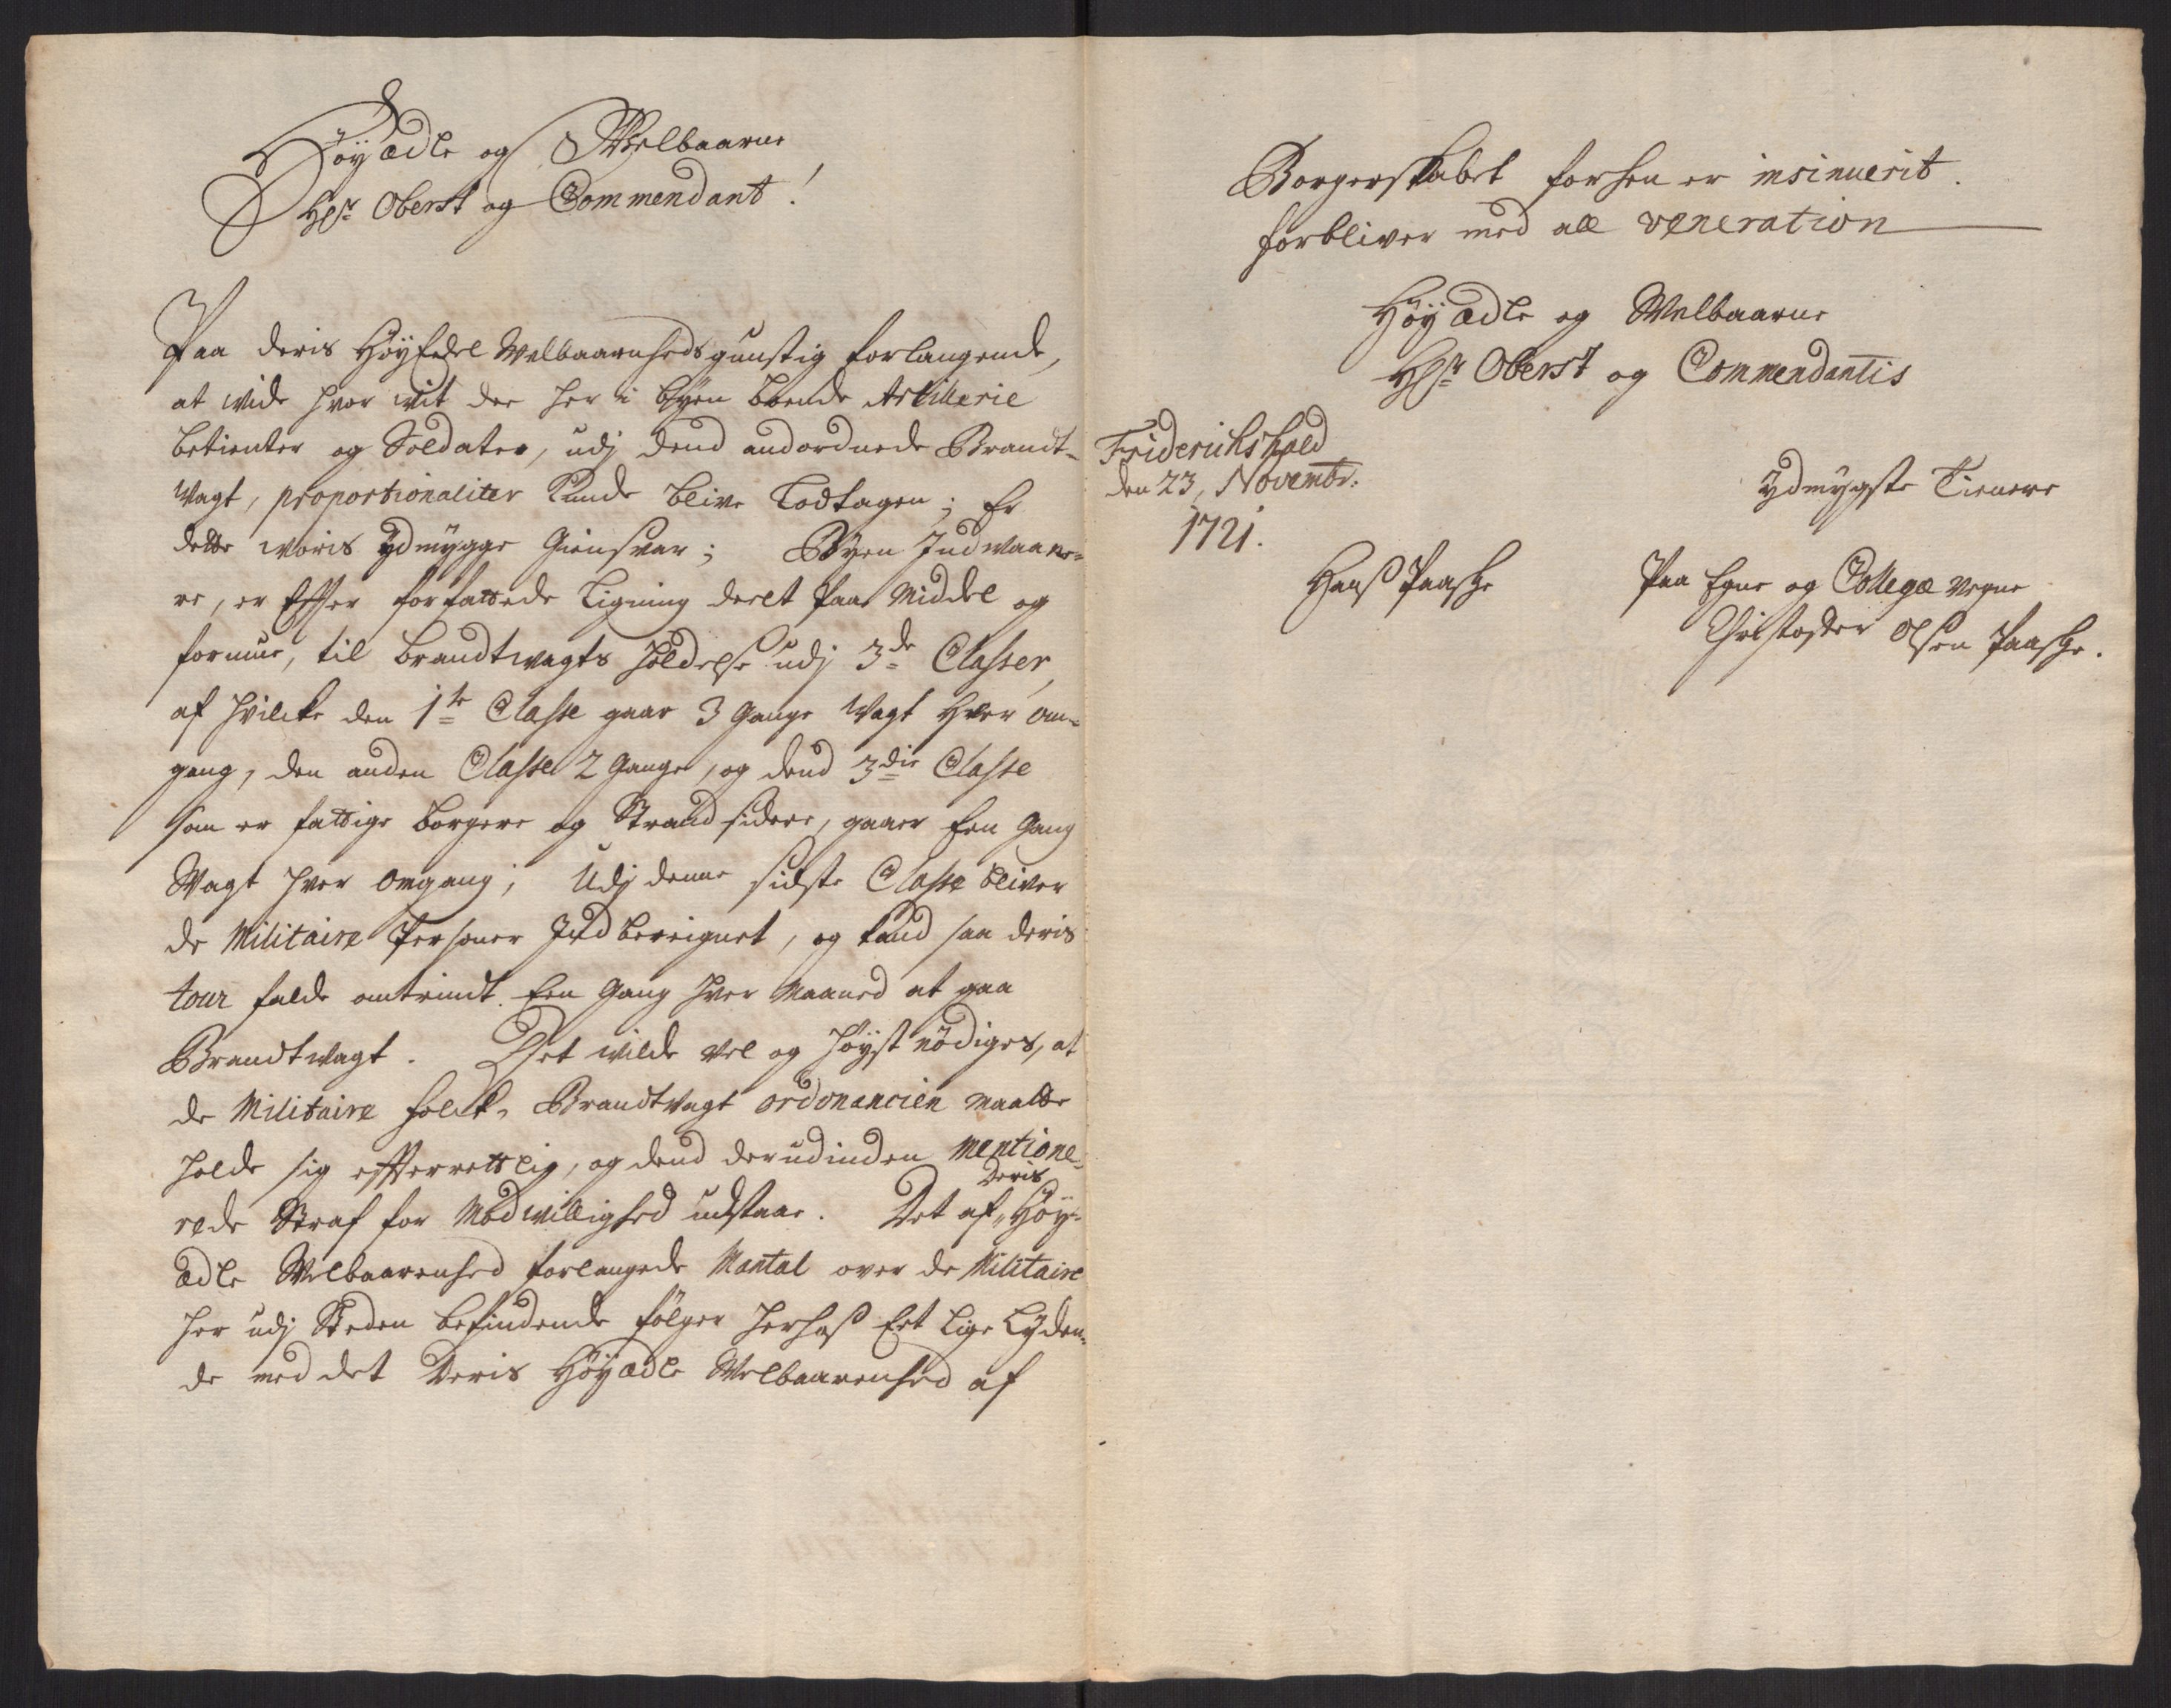 Höyædle og Welbaarne
HEr: Oberst og Commendant!
Paa deris HöyEdel Welbaarenheds gunstig forlangende,
at wide hvor wit der her i byen boende Artillerie
betienter og Soldater, udj dend andordnede Brandt-
Wagt, proportionaliter kunde blive Todtagen; Er
dette woris ydmygge Giensvar; Byen Indwaane-
re, er Effter forfattede Ligning deelt paa Middel og
formue, til brandtwagts holdelse udj 3de Classer,
af hvilcke den 1te Classe gaar 3 gange Wagt hver om-
gang, den anden Classe 2 gange, og dend 3die Classe
som er fattige borgere og Strandsidere, gaaer Een gang
Wagt hver omgang; Udj denne sidste Classe bliver
de Militaire Personer Indbereignet, og kand saa deris
tour falde omtrindt Een gang hver Maaned at gaa
Brandtwagt. Det wilde vel og höyst nödiges, at
de Militaire folck, Brandtwagt ordonancien maatte
holde sig effterrettlig, og dend derudinden mentione-
rede Straf for Modwillighed udstaae. Det af Deris Höy-
ædle Welbaarenhed forlangede Mantal over de Militaire
her udj Steden befindende fölger herhos Eet lige Lyden-
de med det Deris Höyædle Welbaarenhed af
Borgerskabet forhen er insinuerit.
forbliver med all veneration
Höyædle og Welbaarne
HEr: Oberst og Commendantis
Friderichshald
den 23, Novembr:
1721.
ydmygste Tienere
Hans Paaske
Paa Egne og Collegæ vegne
Christopher Olsen Paaske.